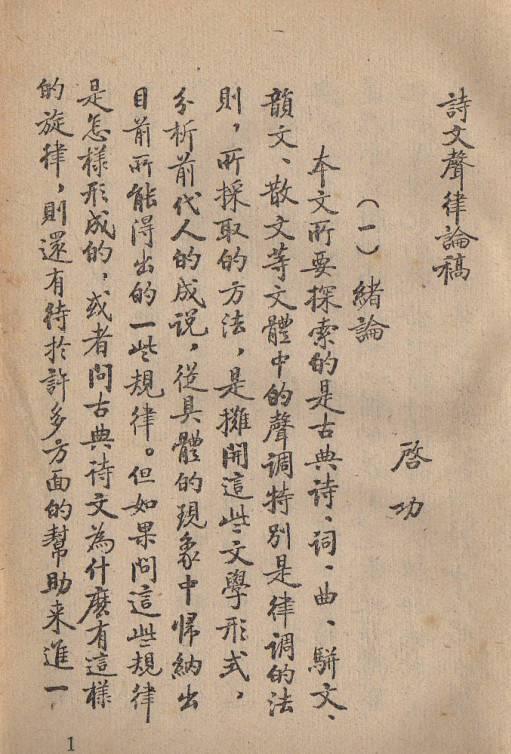 詩文聲律論稿
啓功
(一) 緒論
本文所要探索的是古典詩、詞、曲、駢文、
韻文、散文等文體中的聲調特别是律調的法
則，所採取的方法，是攤開這些文學形式，
分析前代人的成説，從具體的現象中歸納出
目前所能得出的一些規律。但如果問這些規律
是怎樣形成的，或者問古典詩文為什麽有這樣
的旋律，則還有待於許多方面的幫助来進一
1